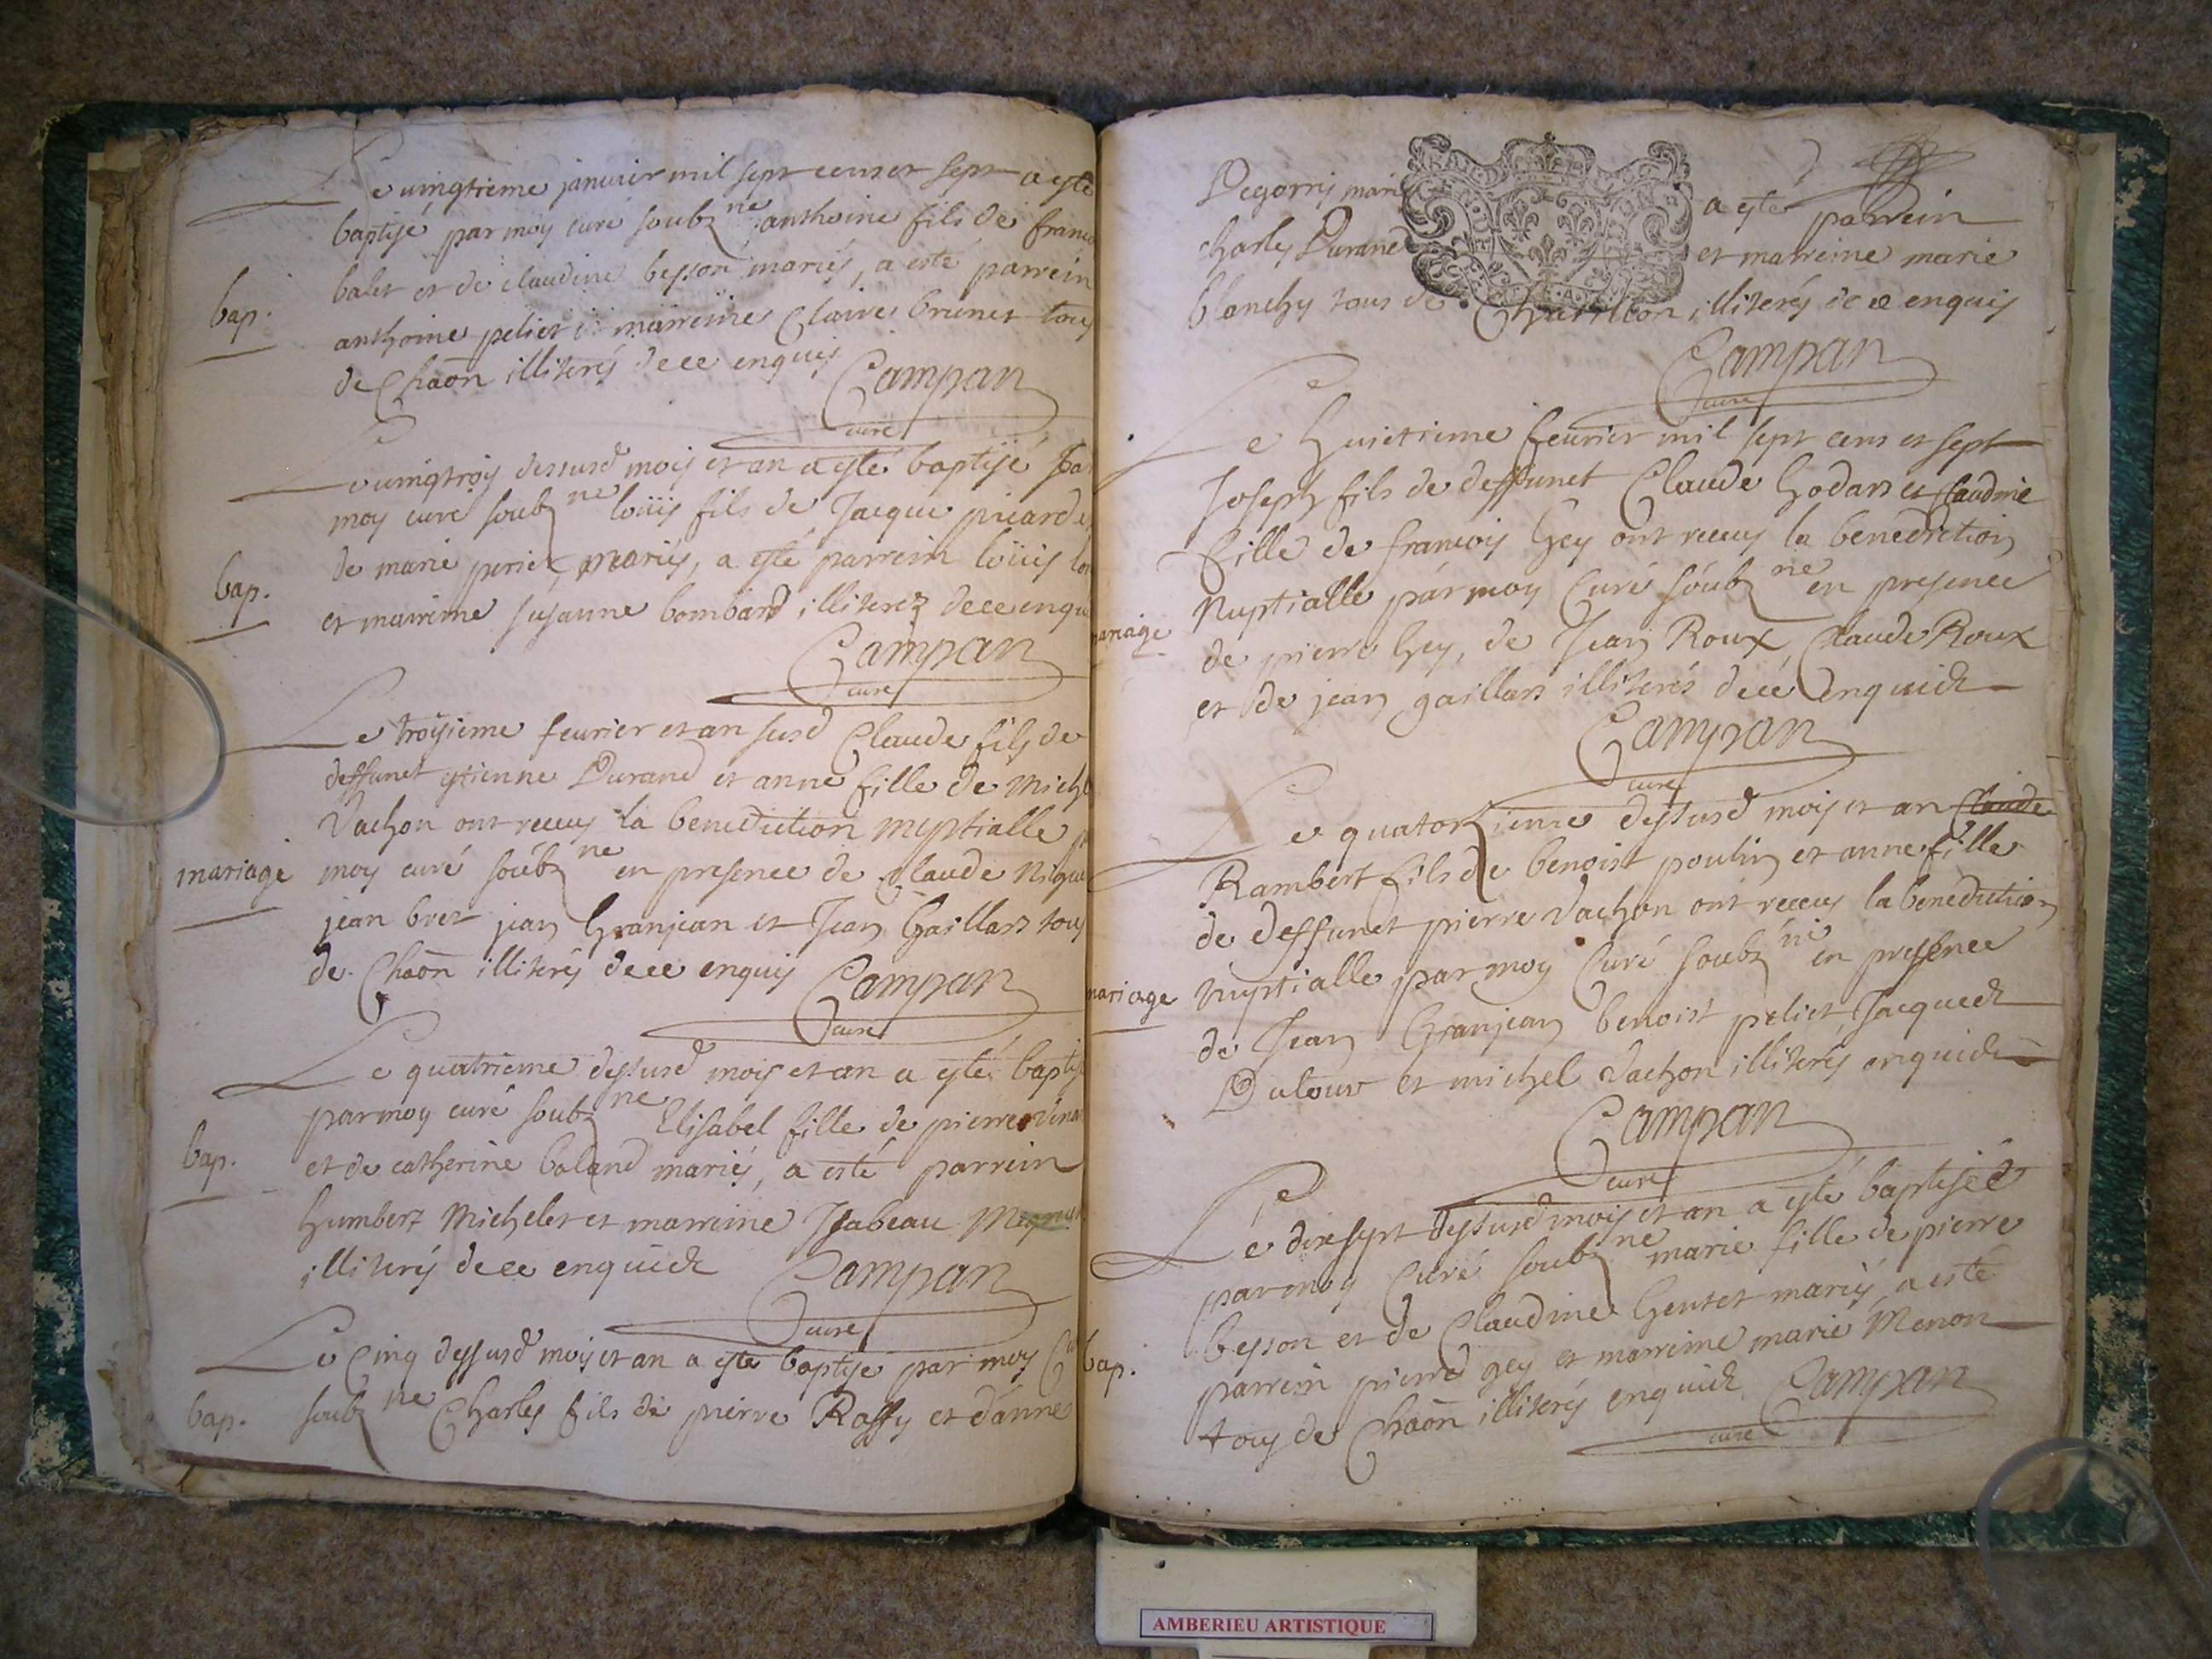 Le vingtieme janvier mil sept cens et sept a esté
baptisé par moy curé soubz ne anthoine fils de franco
balet et de claudine besson mariés, a esté parrein
bap.
anthoine peliet et marreine Claire brunet tous
de Chaōn illiterés de ce enquis
Campan
curé
Le vingtrois dessusd mois et an a esté baptisé par
moy curé soubz ne loüis fils de Jacque picard et
de marie periet, mariés, a esté parrein loüis
bap.
et marreine susanne bombard illiterez de ce enqu
Campan
curé
Le troisieme feurier et an susd Claude fils de
deffunct etienne Durand et anne fille de Miche
Vachon ont receus la benediction nuptialle
mariage
moy curé soubz ne en presence de Claude
jean bret jean Granjean et Jean Gaillard tous
de Chaōn illiterés de ce enquis
Campan
curé
Le quatrieme dessusd mois et an a esté baptis
par moy curé soubz ne Elisabel fille de pierre
bap.
et de catherine baland mariés, a esté parrein
humbert Michelet et marreine Isabeau
illiterés de ce enquick
Campan
curé
Le Cinq dessusd mois et an a esté baptisé par moy
bap.
soubz ne Charles fils de pierre Raffy et d'anne
Degorris mari a esté parrein
Charles Durand et marreine marie
blanchy tous de Chatillon illiterés de ce enquis
Campan
curé
Le huictieme feurier mil sept cens et sept
Joseph fils de deffunct Claude Godard et Claudine
fille de francois Gey ont receus la benediction
Nuptialle par moy Curé soubz ne en presence
mariage
de pierre Gey, de Jean Roux Claude Roux
et de jean gaillard illiterés de ce enquick
Campan
curé
Le quatorzieme dessusd mois et an Claude
Rambert fils de benoist poulin et anne fille
de deffunct pierre Vachon ont receus la benediction
mariage
Nuptialle par moy Curé soubz ne en presence
de Jean Granjean benoist peliet Jacqueck
Dutour et michel Vachon illiterés enquick
Campan
curé
Le dixsept dessusd mois et an a esté baptisée
par moy Curé soubz ne marie fille de pierre
besson et de Claudine Gentet mariés, a esté
bap.
parrein pierre gey et marreine marie Menon
tous de Chaōn illiterés enquick
Campan
curé
AMBERIEU ARTISTIQUE